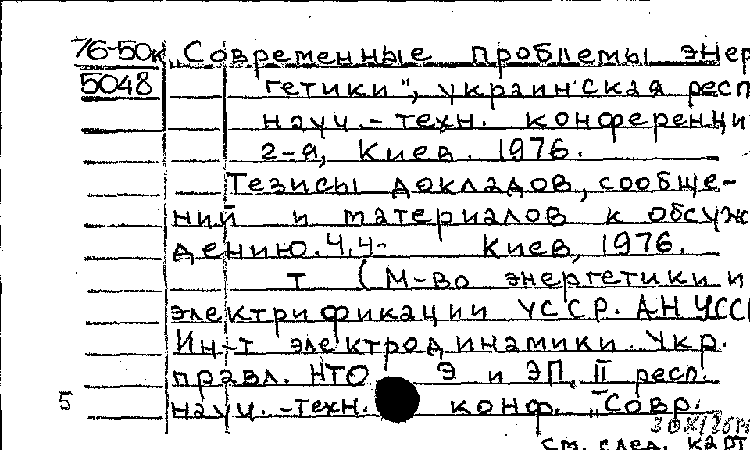 76-50к „Современные проблемы энер
5048 гетики", украинская респ
науч.-техн. конференци
2-я, Киев. 1976.
Тезисы докладов, сообще-
ний и материалов к обсуж
дению. Ч.4- Киев, 1976.
т (М-во энергетики и
электрификации УССР. АН УССР
Ин-т электродинамики. Укр.
правл. НТО Э и ЭП, II респ.
5 науч.-техн. конф. „Совр.
см. след. карт